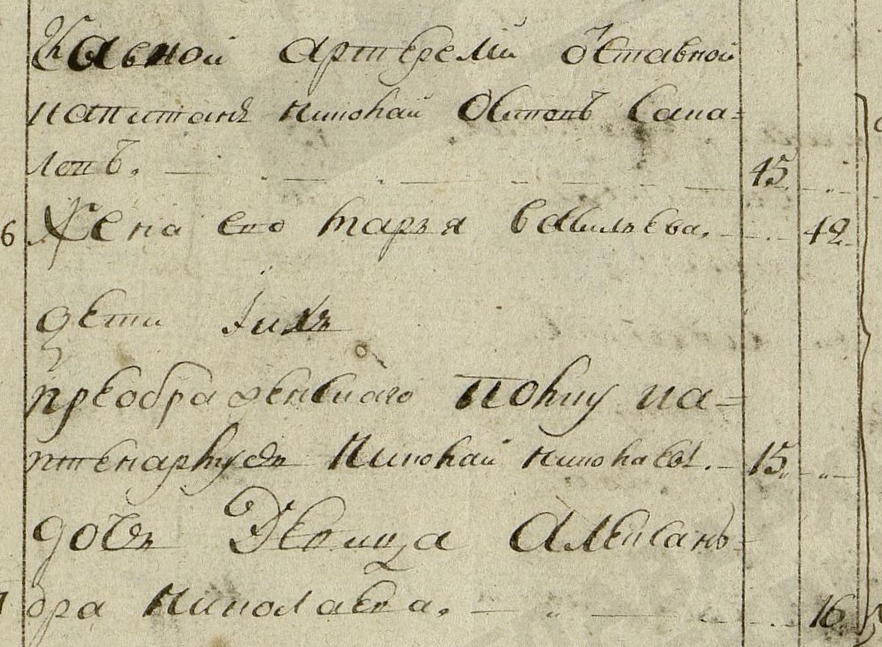 Главной артилерїи отставной
капитанъ Николай Осиповъ Сапа=
ловъ. 45
6 Жена его Марья Савельева. 42
дѣти ихъ
преображенскаго полку ка=
птенармусъ Николай Николаевъ. 15
дочь Девица Александ=
ра Николаева. 16